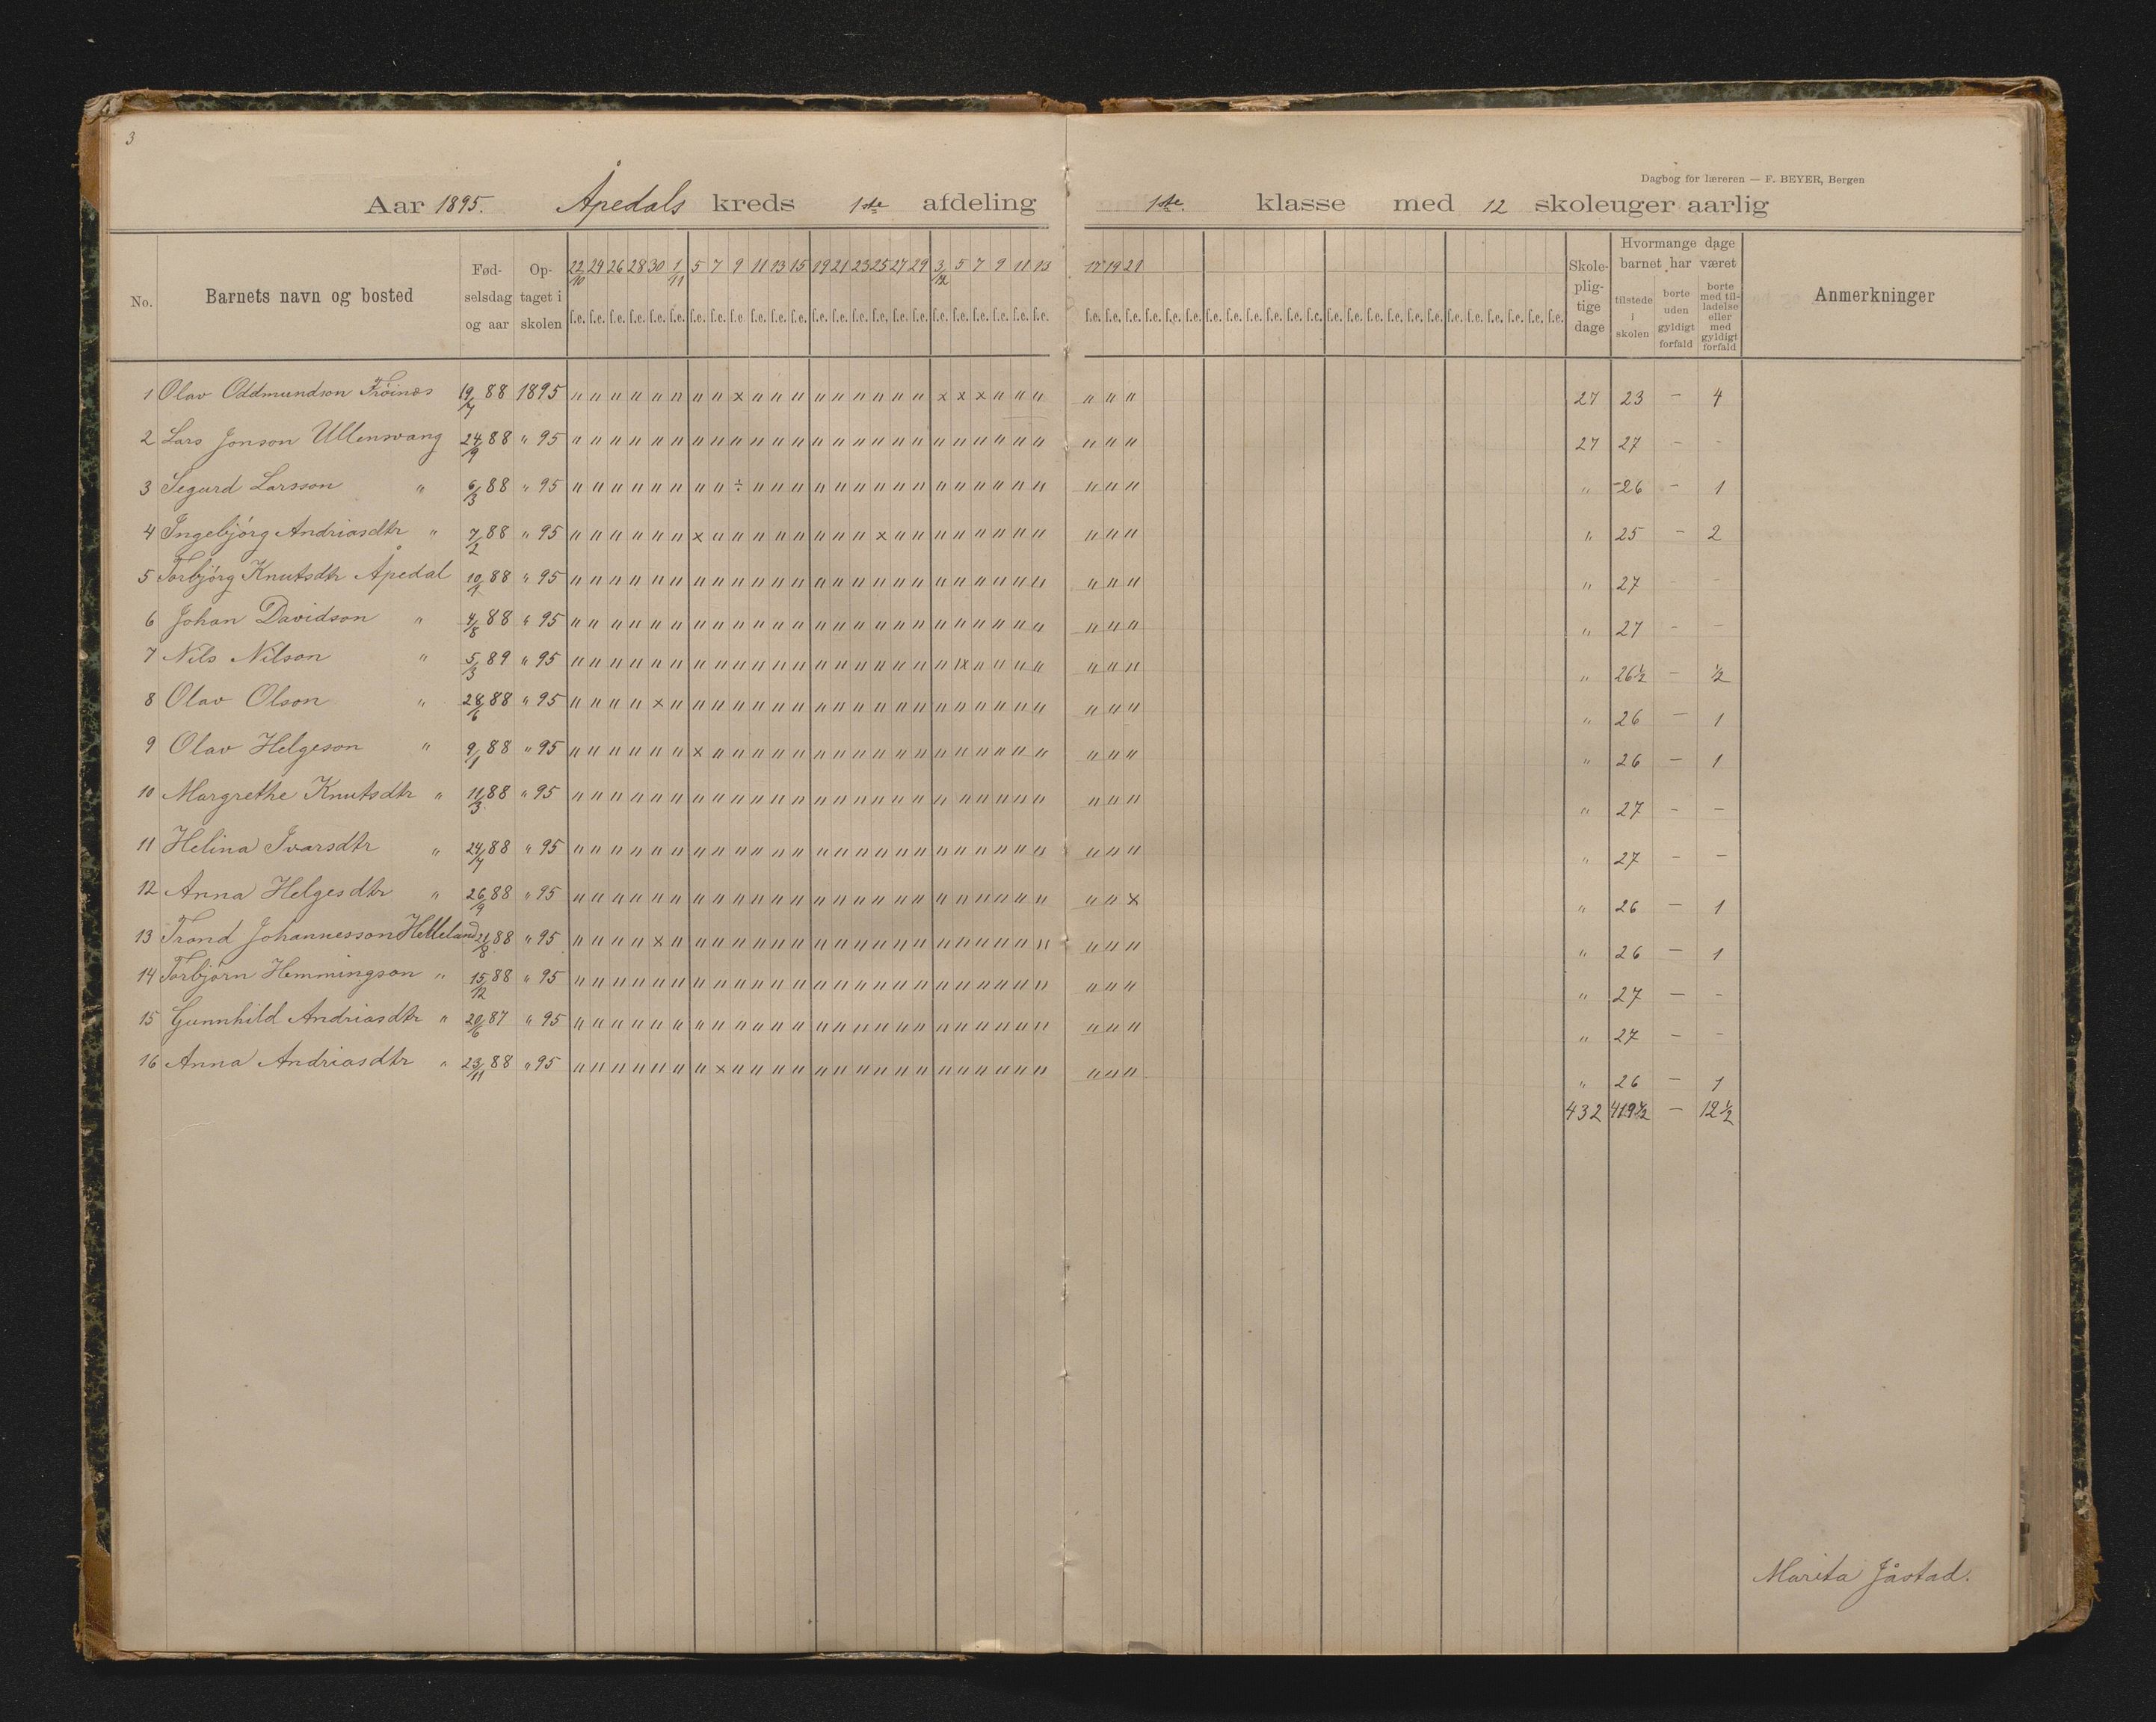 3
Dagbog for læreren — F. BEYER, Bergen
Aar 1895. Åpedals kreds 1ste afdeling 1ste. klasse med 12 skoleuger aarlig
No. Barnets navn og bosted Fød-selsdag og aar Op-taget i skolen 22/10 24 26 28 30 1/11 5 7 9 11 13 15 19 21 23 25 27 29 3/12 5 7 9 11 13 17 19 21 Skole-plig-tige dage Hvormange dage barnet har været tilstede i skolen borte uden gyldigt forfald borte med til-ladelse eller med gyldigt forfald Anmerkninger
f.e. f.e. f.e. f.e. f.e. f.e. f.e. f.e. f.e. f.e. f.e. f.e. f.e. f.e. f.e. f.e. f.e. f.e. f.e. f.e. f.e. f.e. f.e. f.e. f.e. f.e. f.e. f.e. f.e. f.e. f.e. f.e. f.e. f.e. f.e. f.e. f.e. f.e. f.e. f.e. f.e. f.e. f.e. f.e. f.e. f.e. f.e. f.e.
1 Olav Oddmundson Frøinæs 19/7 88 1895 " " " " " " " " x " " " " " " " " " x x x " " " " " " 27 23 – 4
2 Lars Jonson Ullensvang 24/9 88 " 95 " " " " " " " " " " " " " " " " " " " " " " " " " " " 27 27 – –
3 Segurd Larsson " 6/3 88 " 95 " " " " " " " " ÷ " " " " " " " " " " " " " " " " " " " 26 – 1
4 Ingebjørg Andriasdtr " 7/2 88 " 95 " " " " " " x " " " " " " " " x " " " " " " " " " " " " 25 – 2
5 Torbjørg Knutsdtr Åpedal 10/9 88 " 95 " " " " " " " " " " " " " " " " " " " " " " " " " " " " 27 – –
6 Johan Davidson " 4/8 88 " 95 " " " " " " " " " " " " " " " " " " " " " " " " " " " " 27 – –
7 Nils Nilson " 5/3 89 " 95 " " " " " " " " " " " " " " " " " " " ıx " " " " " " " " 26½ – ½
8 Olav Olson " 28/6 88 " 95 " " " " x " " " " " " " " " " " " " " " " " " " " " " " 26 – 1
9 Olav Helgeson " 9/1 88 " 95 " " " " " " x " " " " " " " " " " " " " " " " " " " " " 26 – 1
10 Margrethe Knutsdtr " 11/3 88 " 95 " " " " " " " " " " " " " " " " " " " " " " " " " " " " 27 – –
11 Helina Ivarsdtr " 24/7 88 " 95 " " " " " " " " " " " " " " " " " " " " " " " " " " " " 27 – –
12 Anna Helgesdtr " 26/9 88 " 95 " " " " " " " " " " " " " " " " " " " " " " " " " " x " 26 – 1
13 Trond Johannesson Helleland 21/8 88 " 95 " " " " x " " " " " " " " " " " " " " " " " " " " " " " 26 – 1
14 Torbjørn Hemmingson " 15/12 88 " 95 " " " " " " " " " " " " " " " " " " " " " " " " " " " " 27 – –
15 Gunnhild Andriasdtr " 20/6 87 " 95 " " " " " " " " " " " " " " " " " " " " " " " " " " " " 27 – –
16 Anna Andriasdtr " 23/11 88 " 95 " " " " " " " x " " " " " " " " " " " " " " " " " " " " 26 – 1
432 419½ – 12½
Marita Jåstad.